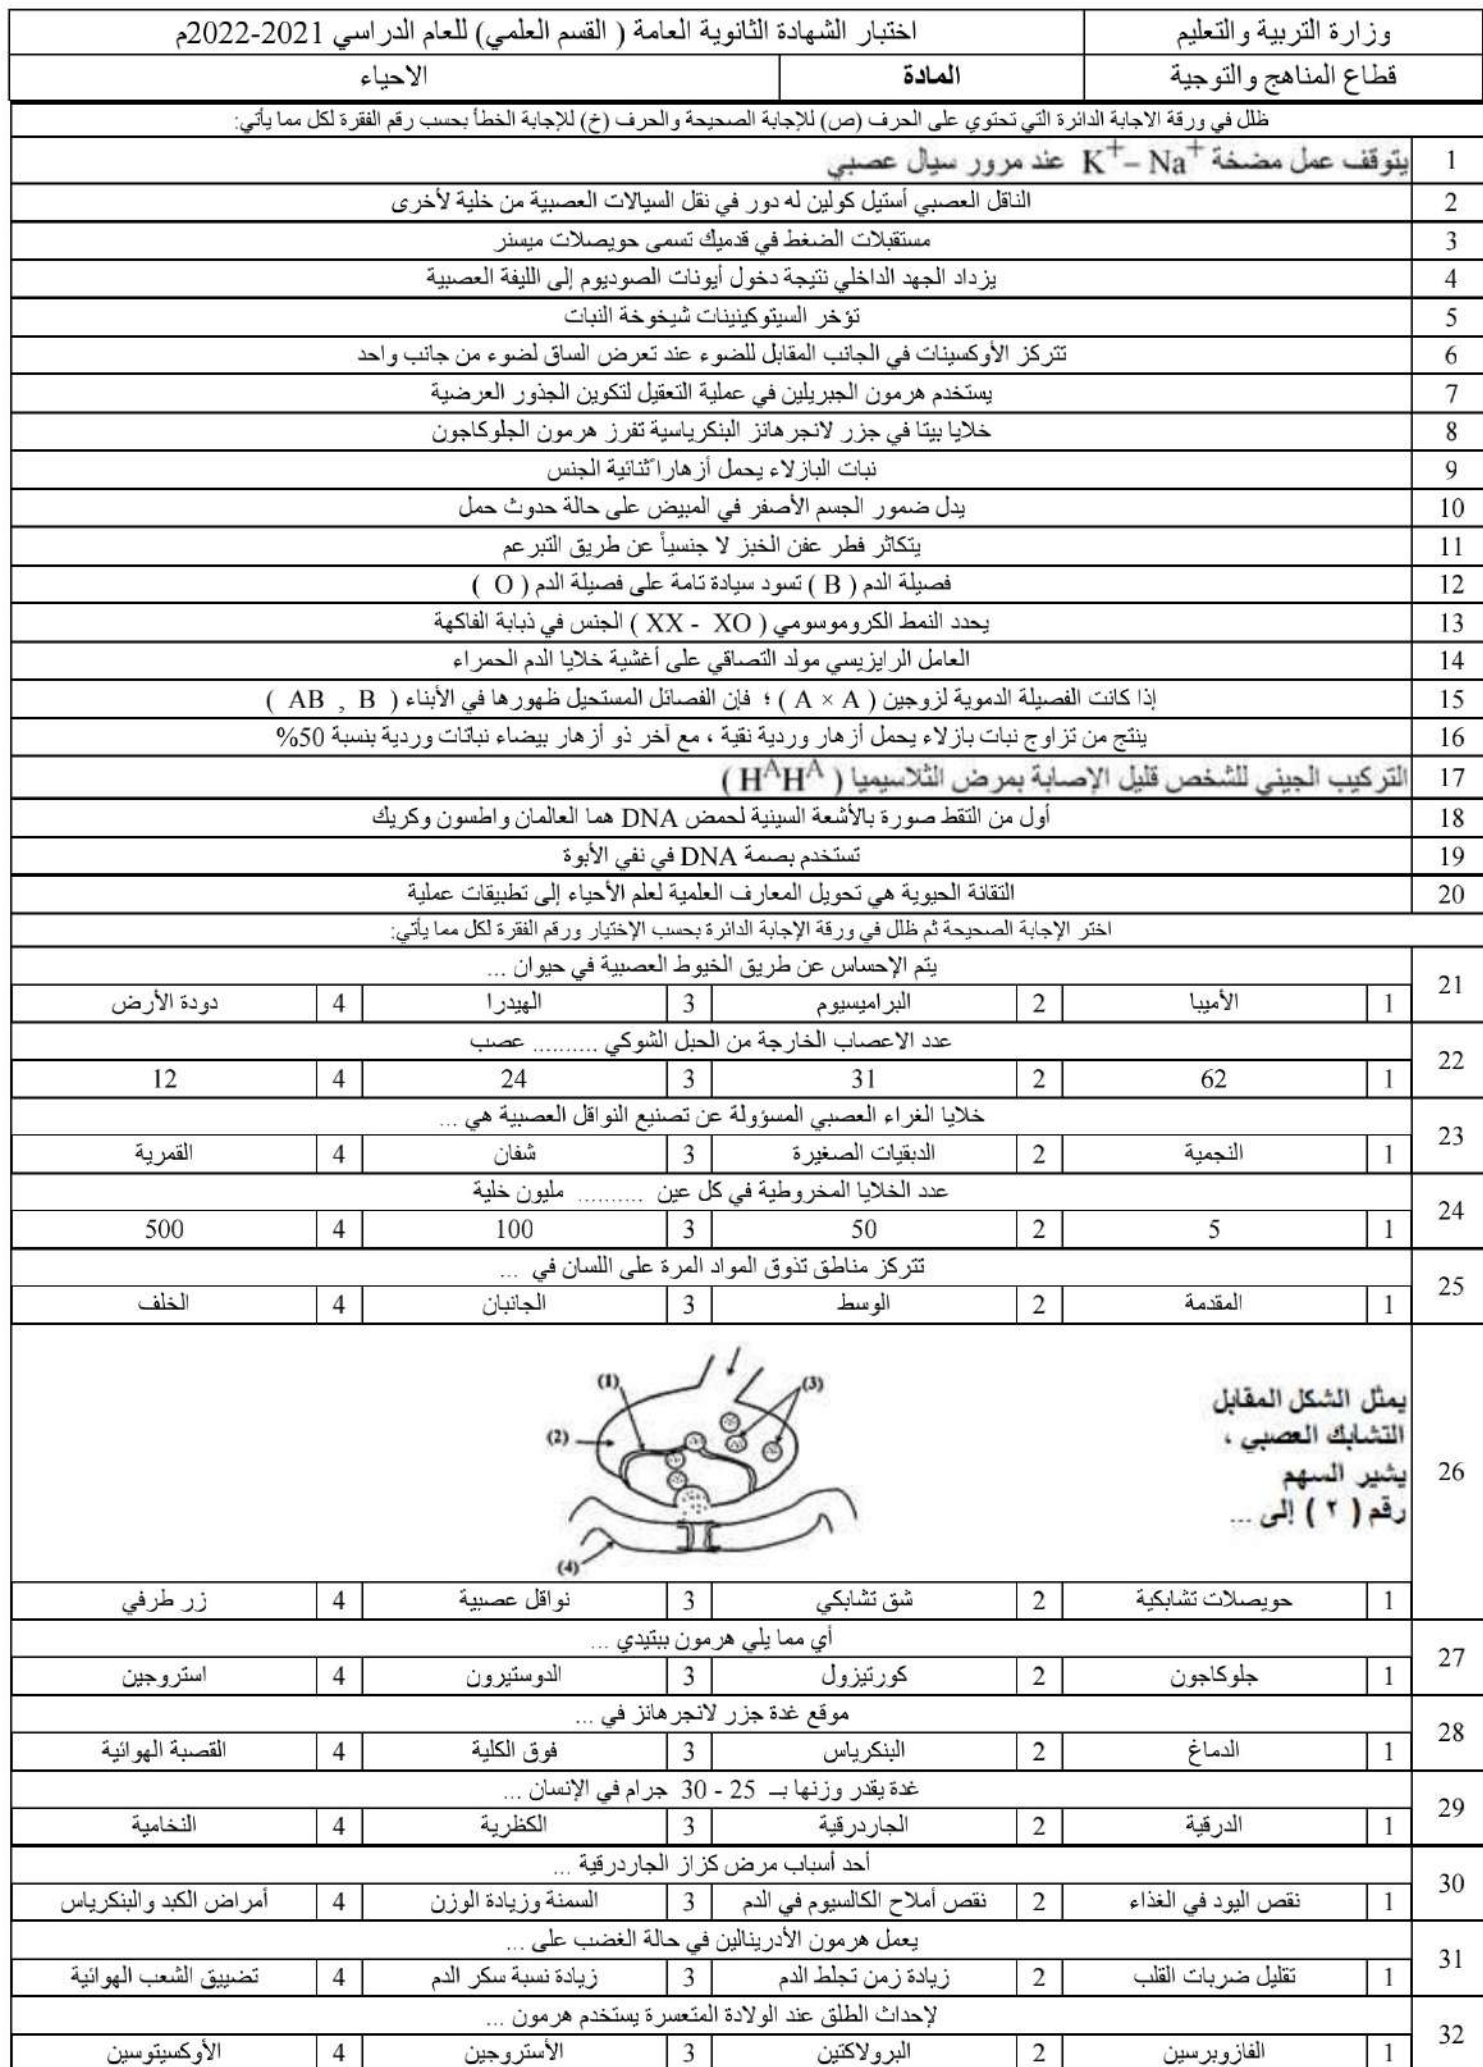 وزارة التربية والتعليم
اختبار الشهادة الثانوية العامة ( القسم العلمي) للعام الدراسي 2021-2022م
قطاع المناهج والتوجية
المادة
الاحياء
ظلل في ورقة الاجابة الدائرة التي تحتوي على الحرف (ص) للإجابة الصحيحة والحرف (خ) للإجابة الخطأ بحسب رقم الفقرة لكل مما يأتي:
1 يتوقف عمل مضخة K⁺– Na⁺ عند مرور سيال عصبي
2 الناقل العصبي أستيل كولين له دور في نقل السيالات العصبية من خلية لأخرى
3 مستقبلات الضغط في قدميك تسمى حويصلات ميسنر
4 يزداد الجهد الداخلي نتيجة دخول أيونات الصوديوم إلى الليفة العصبية
5 تؤخر السيتوكينينات شيخوخة النبات
6 تتركز الأوكسينات في الجانب المقابل للضوء عند تعرض الساق لضوء من جانب واحد
7 يستخدم هرمون الجبريلين في عملية التعقيل لتكوين الجذور العرضية
8 خلايا بيتا في جزر لانجرهانز البنكرياسية تفرز هرمون الجلوكاجون
9 نبات البازلاء يحمل أزهاراً ثنائية الجنس
10 يدل ضمور الجسم الأصفر في المبيض على حالة حدوث حمل
11 يتكاثر فطر عفن الخبز لا جنسياً عن طريق التبرعم
12 فصيلة الدم ( B ) تسود سيادة تامة على فصيلة الدم ( O )
13 يحدد النمط الكروموسومي ( XX - XO ) الجنس في ذبابة الفاكهة
14 العامل الرايزيسي مولد التصاقي على أغشية خلايا الدم الحمراء
15 إذا كانت الفصيلة الدموية لزوجين ( A × A ) ؛ فإن الفصائل المستحيل ظهورها في الأبناء ( AB , B )
16 ينتج من تزاوج نبات بازلاء يحمل أزهار وردية نقية ، مع آخر ذو أزهار بيضاء نباتات وردية بنسبة 50%
17 التركيب الجيني للشخص قليل الإصابة بمرض الثلاسيميا ( HᴬHᴬ )
18 أول من التقط صورة بالأشعة السينية لحمض DNA هما العالمان واطسون وكريك
19 تستخدم بصمة DNA في نفي الأبوة
20 التقانة الحيوية هي تحويل المعارف العلمية لعلم الأحياء إلى تطبيقات عملية
اختر الإجابة الصحيحة ثم ظلل في ورقة الإجابة الدائرة بحسب الإختيار ورقم الفقرة لكل مما يأتي:
21 يتم الإحساس عن طريق الخيوط العصبية في حيوان ...
1 الأميبا 2 البراميسيوم 3 الهيدرا 4 دودة الأرض
22 عدد الاعصاب الخارجة من الحبل الشوكي .......... عصب
1 62 2 31 3 24 4 12
23 خلايا الغراء العصبي المسؤولة عن تصنيع النواقل العصبية هي ...
1 النجمية 2 الدبقيات الصغيرة 3 شفان 4 القمرية
24 عدد الخلايا المخروطية في كل عين .......... مليون خلية
1 5 2 50 3 100 4 500
25 تتركز مناطق تذوق المواد المرة على اللسان في ...
1 المقدمة 2 الوسط 3 الجانبان 4 الخلف
26 يمثل الشكل المقابل
التشابك العصبي ،
يشير السهم
رقم ( ٢ ) إلى ...
(1)
(3)
(2)
(4)
1 حويصلات تشابكية 2 شق تشابكي 3 نواقل عصبية 4 زر طرفي
27 أي مما يلي هرمون ببتيدي ...
1 جلوكاجون 2 كورتيزول 3 الدوستيرون 4 استروجين
28 موقع غدة جزر لانجرهانز في ...
1 الدماغ 2 البنكرياس 3 فوق الكلية 4 القصبة الهوائية
29 غدة يقدر وزنها بــ 25 - 30 جرام في الإنسان ...
1 الدرقية 2 الجاردرقية 3 الكظرية 4 النخامية
30 أحد أسباب مرض كزاز الجاردرقية ...
1 نقص اليود في الغذاء 2 نقص أملاح الكالسيوم في الدم 3 السمنة وزيادة الوزن 4 أمراض الكبد والبنكرياس
31 يعمل هرمون الأدرينالين في حالة الغضب على ...
1 تقليل ضربات القلب 2 زيادة زمن تجلط الدم 3 زيادة نسبة سكر الدم 4 تضييق الشعب الهوائية
32 لإحداث الطلق عند الولادة المتعسرة يستخدم هرمون ...
1 الفازوبرسين 2 البرولاكتين 3 الأستروجين 4 الأوكسيتوسين